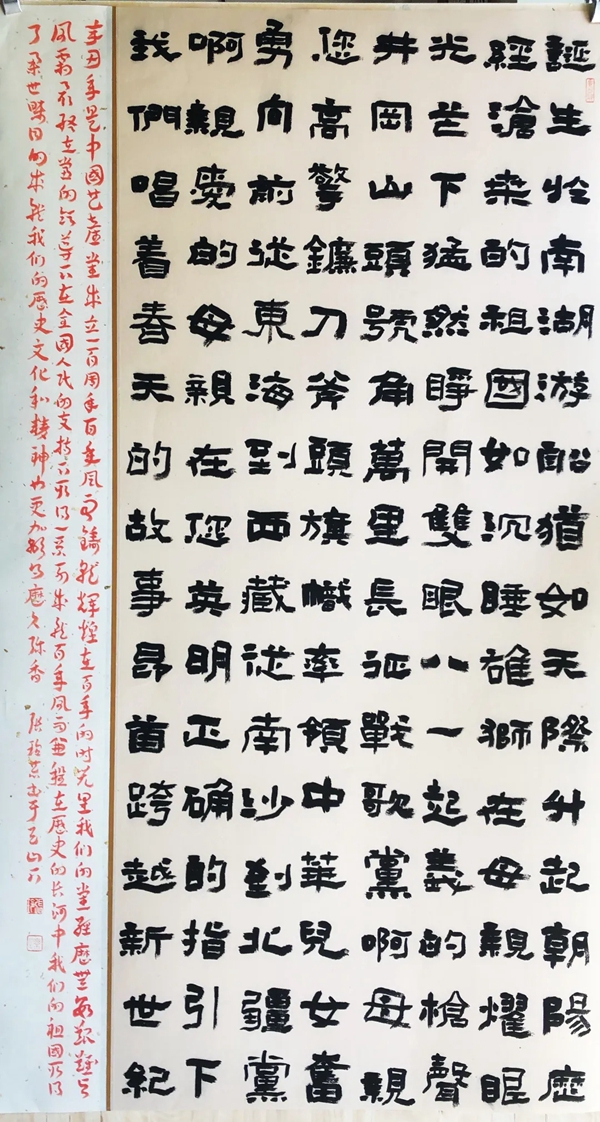 誕生於南湖游船猶如天際升起朝陽歷
經滄桑的祖國如沉睡雄獅在母親耀眼
光芒下猛然睜開雙眼八一起義的槍聲
井岡山頭號角萬里長征戰歌黨啊母親
您高擎鐮刀斧頭旗幟率領中華兒女奮
勇向前從東海到西藏從南沙到北疆黨
啊親愛的母親在您英明正确的指引下
我們唱着春天的故事昂首跨越新世紀
辛丑年是中國共產黨成立一百周年百年風雨鑄就輝煌在百年的时光里我们的党經歷無數艰難与
風霜在党的领导下在全國人民的支持下取得一系列成就百年風雨兼程在歷史的长河中我们的祖國取得
了舉世矚目的成就我们的歷史文化和精神也更加歷久弥香